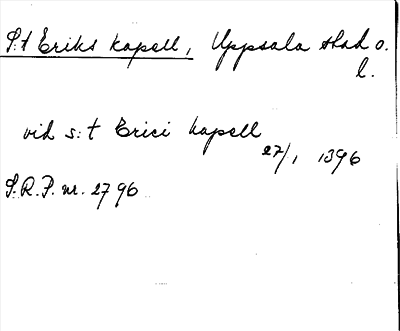 S:t Eriks kapell, Uppsala stad o.
l.
vid s:t Erici kapell
27/1 1396
S.R.P. nr. 2796